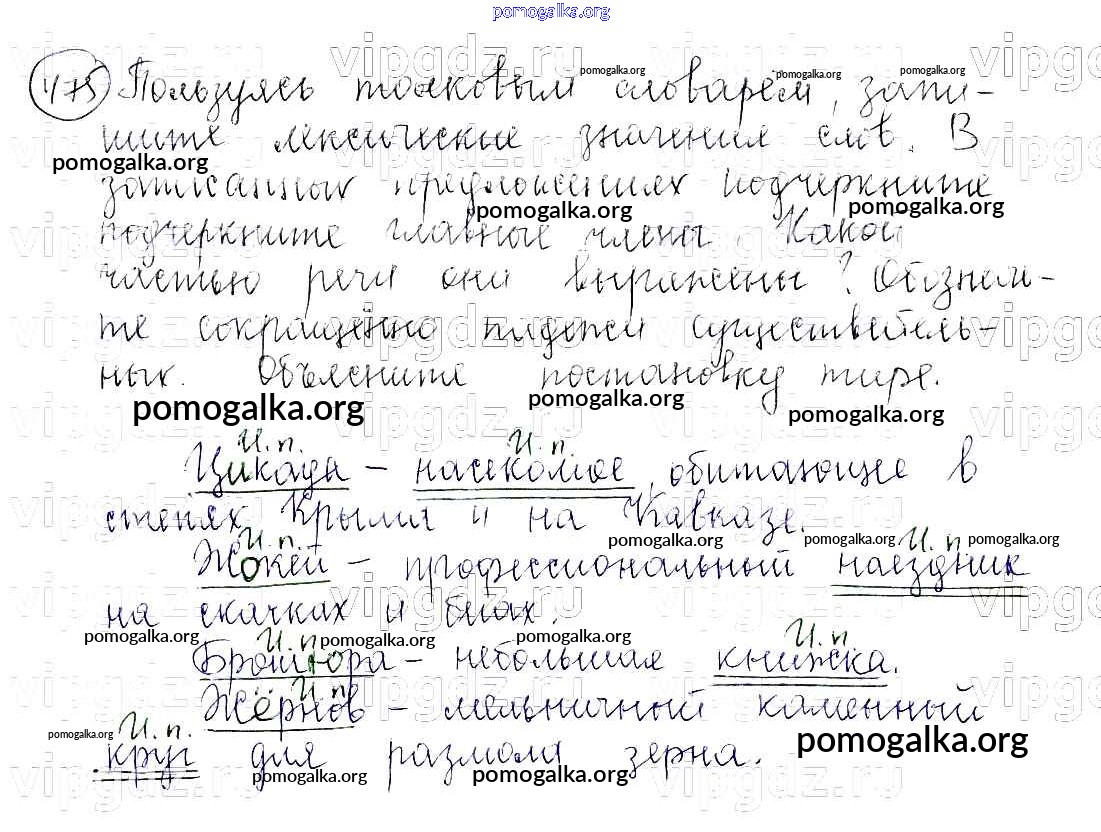 pomogalka.org
475 Пользуясь толковым словарём, запи-
шите лексические значения слов. В
записанных предложениях подчеркните
подчеркните главные члены. Какой
частью речи они выражены? Обозначь-
те сокращённо падежи существитель-
ных. Объясните постановку тире.
И. п. И. п.
Цикада – насекомое, обитающее в
степях Крыма и на Кавказе.
И. п. И. п
Жокей – профессиональный наездник
на скачках и бегах.
И. п И. п
Брошюра – небольшая книжка.
И. п.
Жёрнов – мельничный каменный
И. п.
круг для размола зерна.